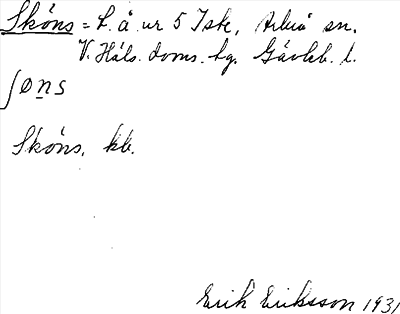 Skóns = h. å ur 5 Iste, Arbrå sn.
V. Häls. doms. hg. Gävleb. l.
ʃøns
Skóns. kb.
Erik Eriksson 1931